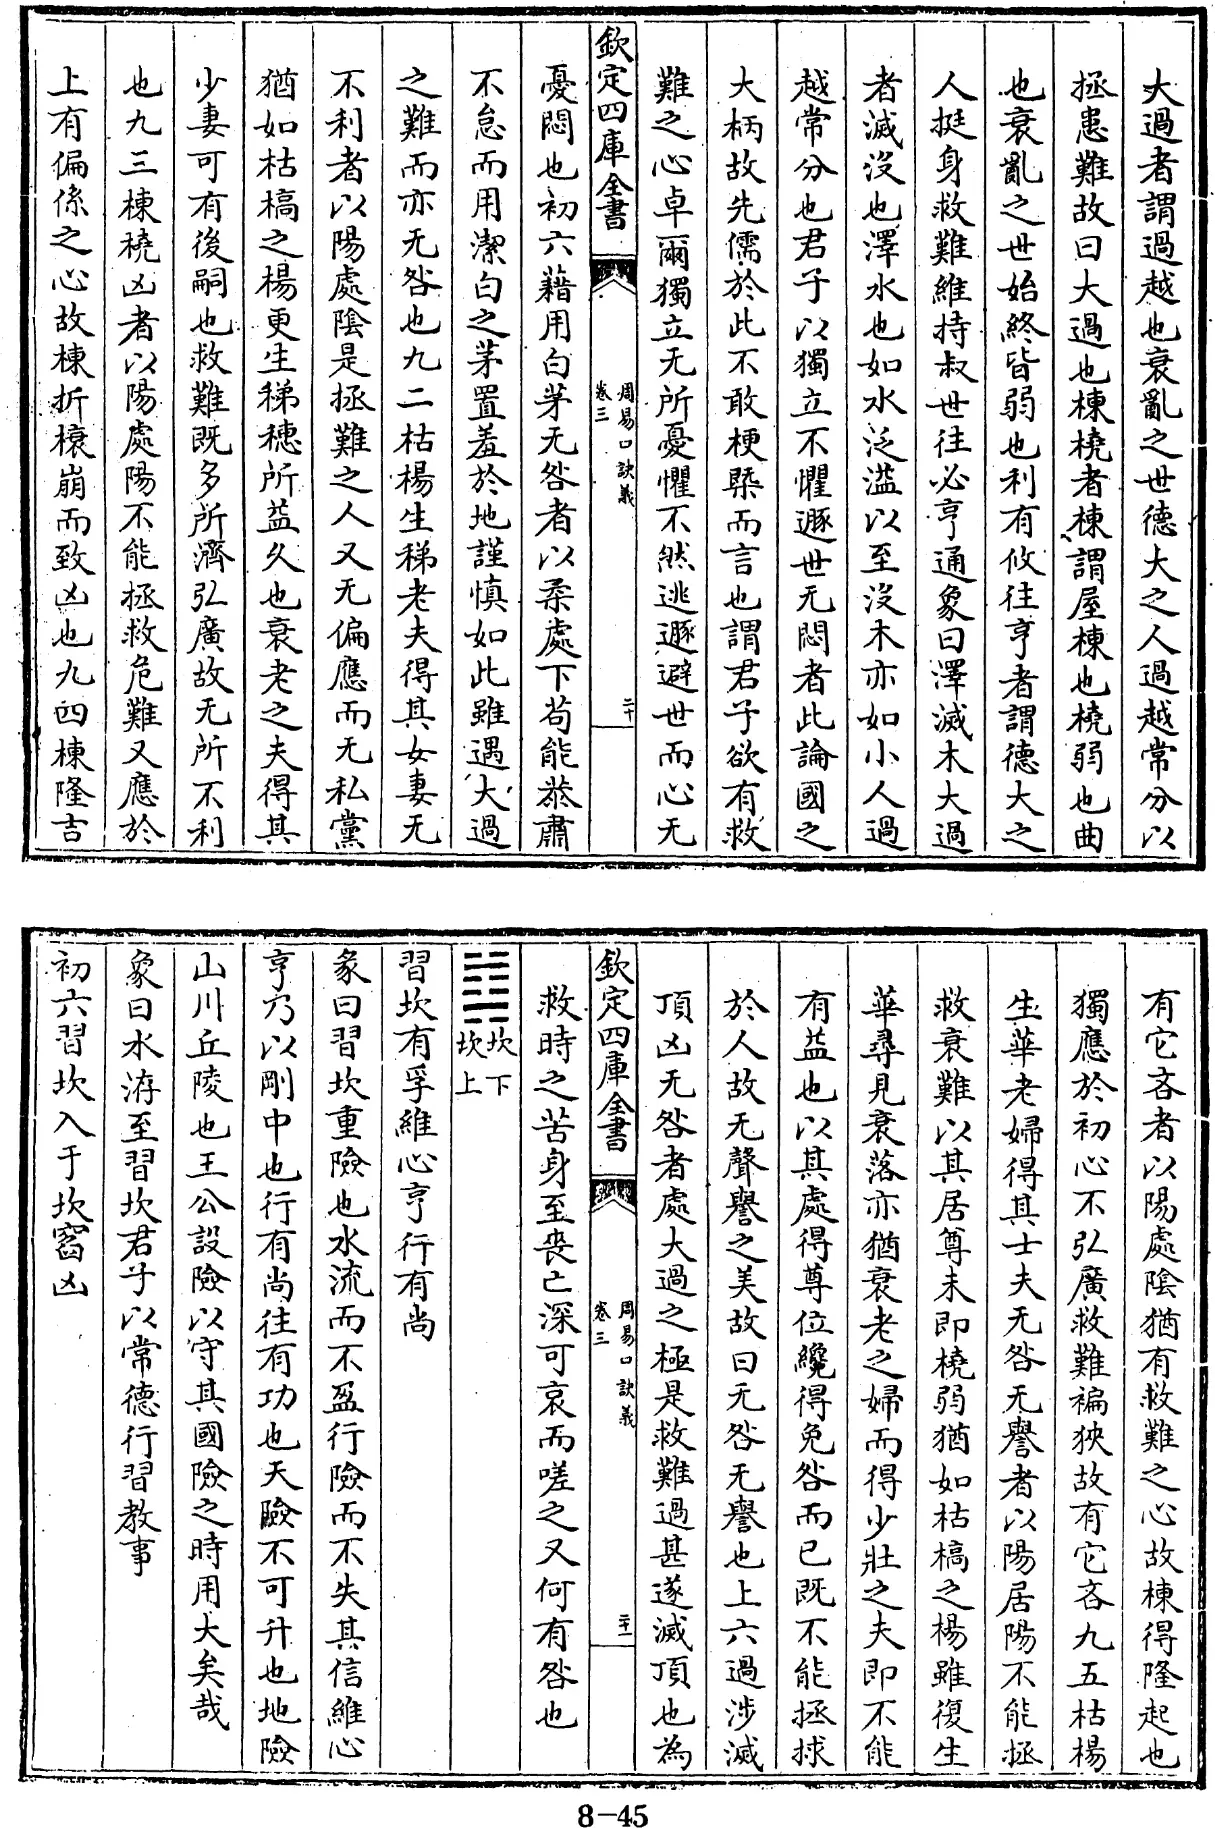 大過者謂過越也衰亂之世德大之人過越常分以
拯患難故曰大過也棟橈者棟謂屋棟也橈弱也曲
也衰亂之世始終皆弱也利有攸往亨者謂德大之
人挺身救難維持叔世往必亨通象曰澤滅木大過
者滅沒也澤水也如水泛溢以至沒木亦如小人過
越常分也君子以獨立不懼遯世无悶者此論國之
大柄故先儒於此不敢梗槩而言也謂君子欲有救
難之心卓爾獨立无所憂懼不然逃遯避世而心无
欽定四庫全書
周易口訣義
卷三
二十
憂悶也初六藉用白茅无咎者以柔處下苟能恭肅
不怠而用潔白之茅置羞於地謹慎如此雖遇大過
之難而亦无咎也九二枯楊生稊老夫得其女妻无
不利者以陽處陰是拯難之人又无偏應而无私黨
猶如枯槁之楊更生稊穗所益久也衰老之夫得其
少妻可有後嗣也救難既多所濟弘廣故无所不利
也九三棟橈凶者以陽處陽不能拯救危難又應於
上有偏係之心故棟折榱崩而致凶也九四棟隆吉
有它吝者以陽處陰猶有救難之心故棟得隆起也
獨應於初心不弘廣救難褊狹故有它吝九五枯楊
生華老婦得其士夫无咎无譽者以陽居陽不能拯
救衰難以其居尊未即橈弱猶如枯槁之楊雖復生
華尋見衰落亦猶衰老之婦而得少壯之夫即不能
有益也以其處得尊位纔得免咎而已既不能拯救
於人故无聲譽之美故曰无咎无譽也上六過涉滅
頂凶无咎者處大過之極是救難過甚遂滅頂也為
欽定四庫全書
周易口訣義
卷三
二十一
救時之苦身至喪亡深可哀而嗟之又何有咎也
䷜坎下
坎上
習坎有孚維心亨行有尚
彖曰習坎重險也水流而不盈行險而不失其信維心
亨乃以剛中也行有尚往有功也天險不可升也地險
山川丘陵也王公設險以守其國險之時用大矣哉
象曰水洊至習坎君子以常德行習教事
初六習坎入于坎窞凶
8-45